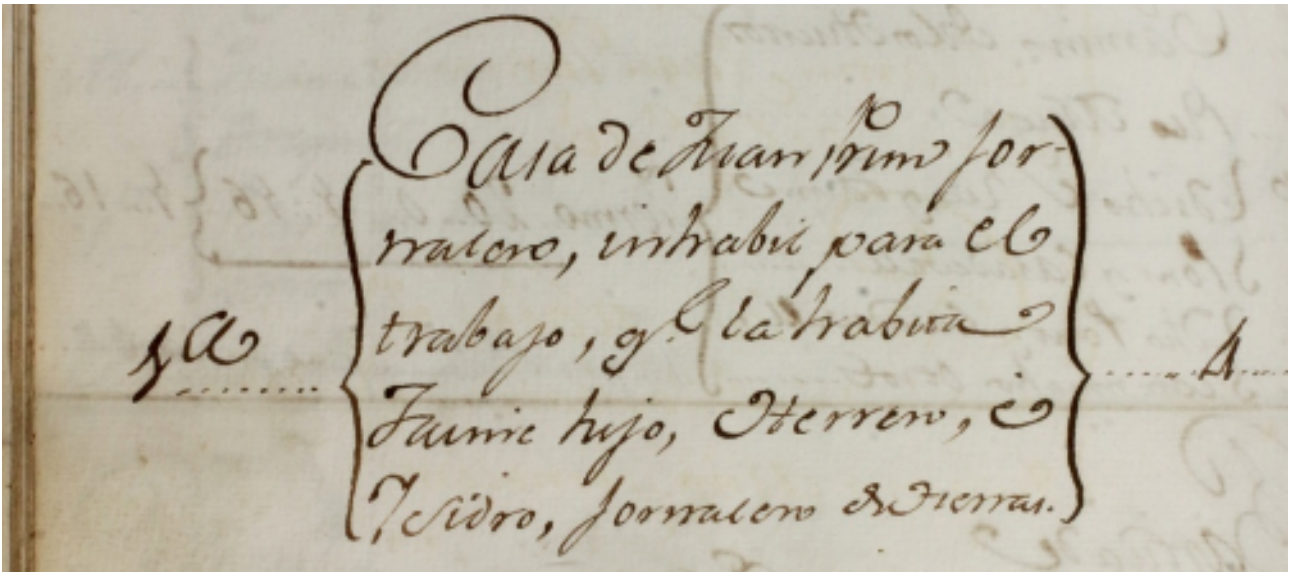 Casa de Juan Prim Jor-
nalero, inhabil para el
1a trabajo, q.e la habita 4
Jaime hijo, Herrero, e
Isidro, Jornalero de tierras.